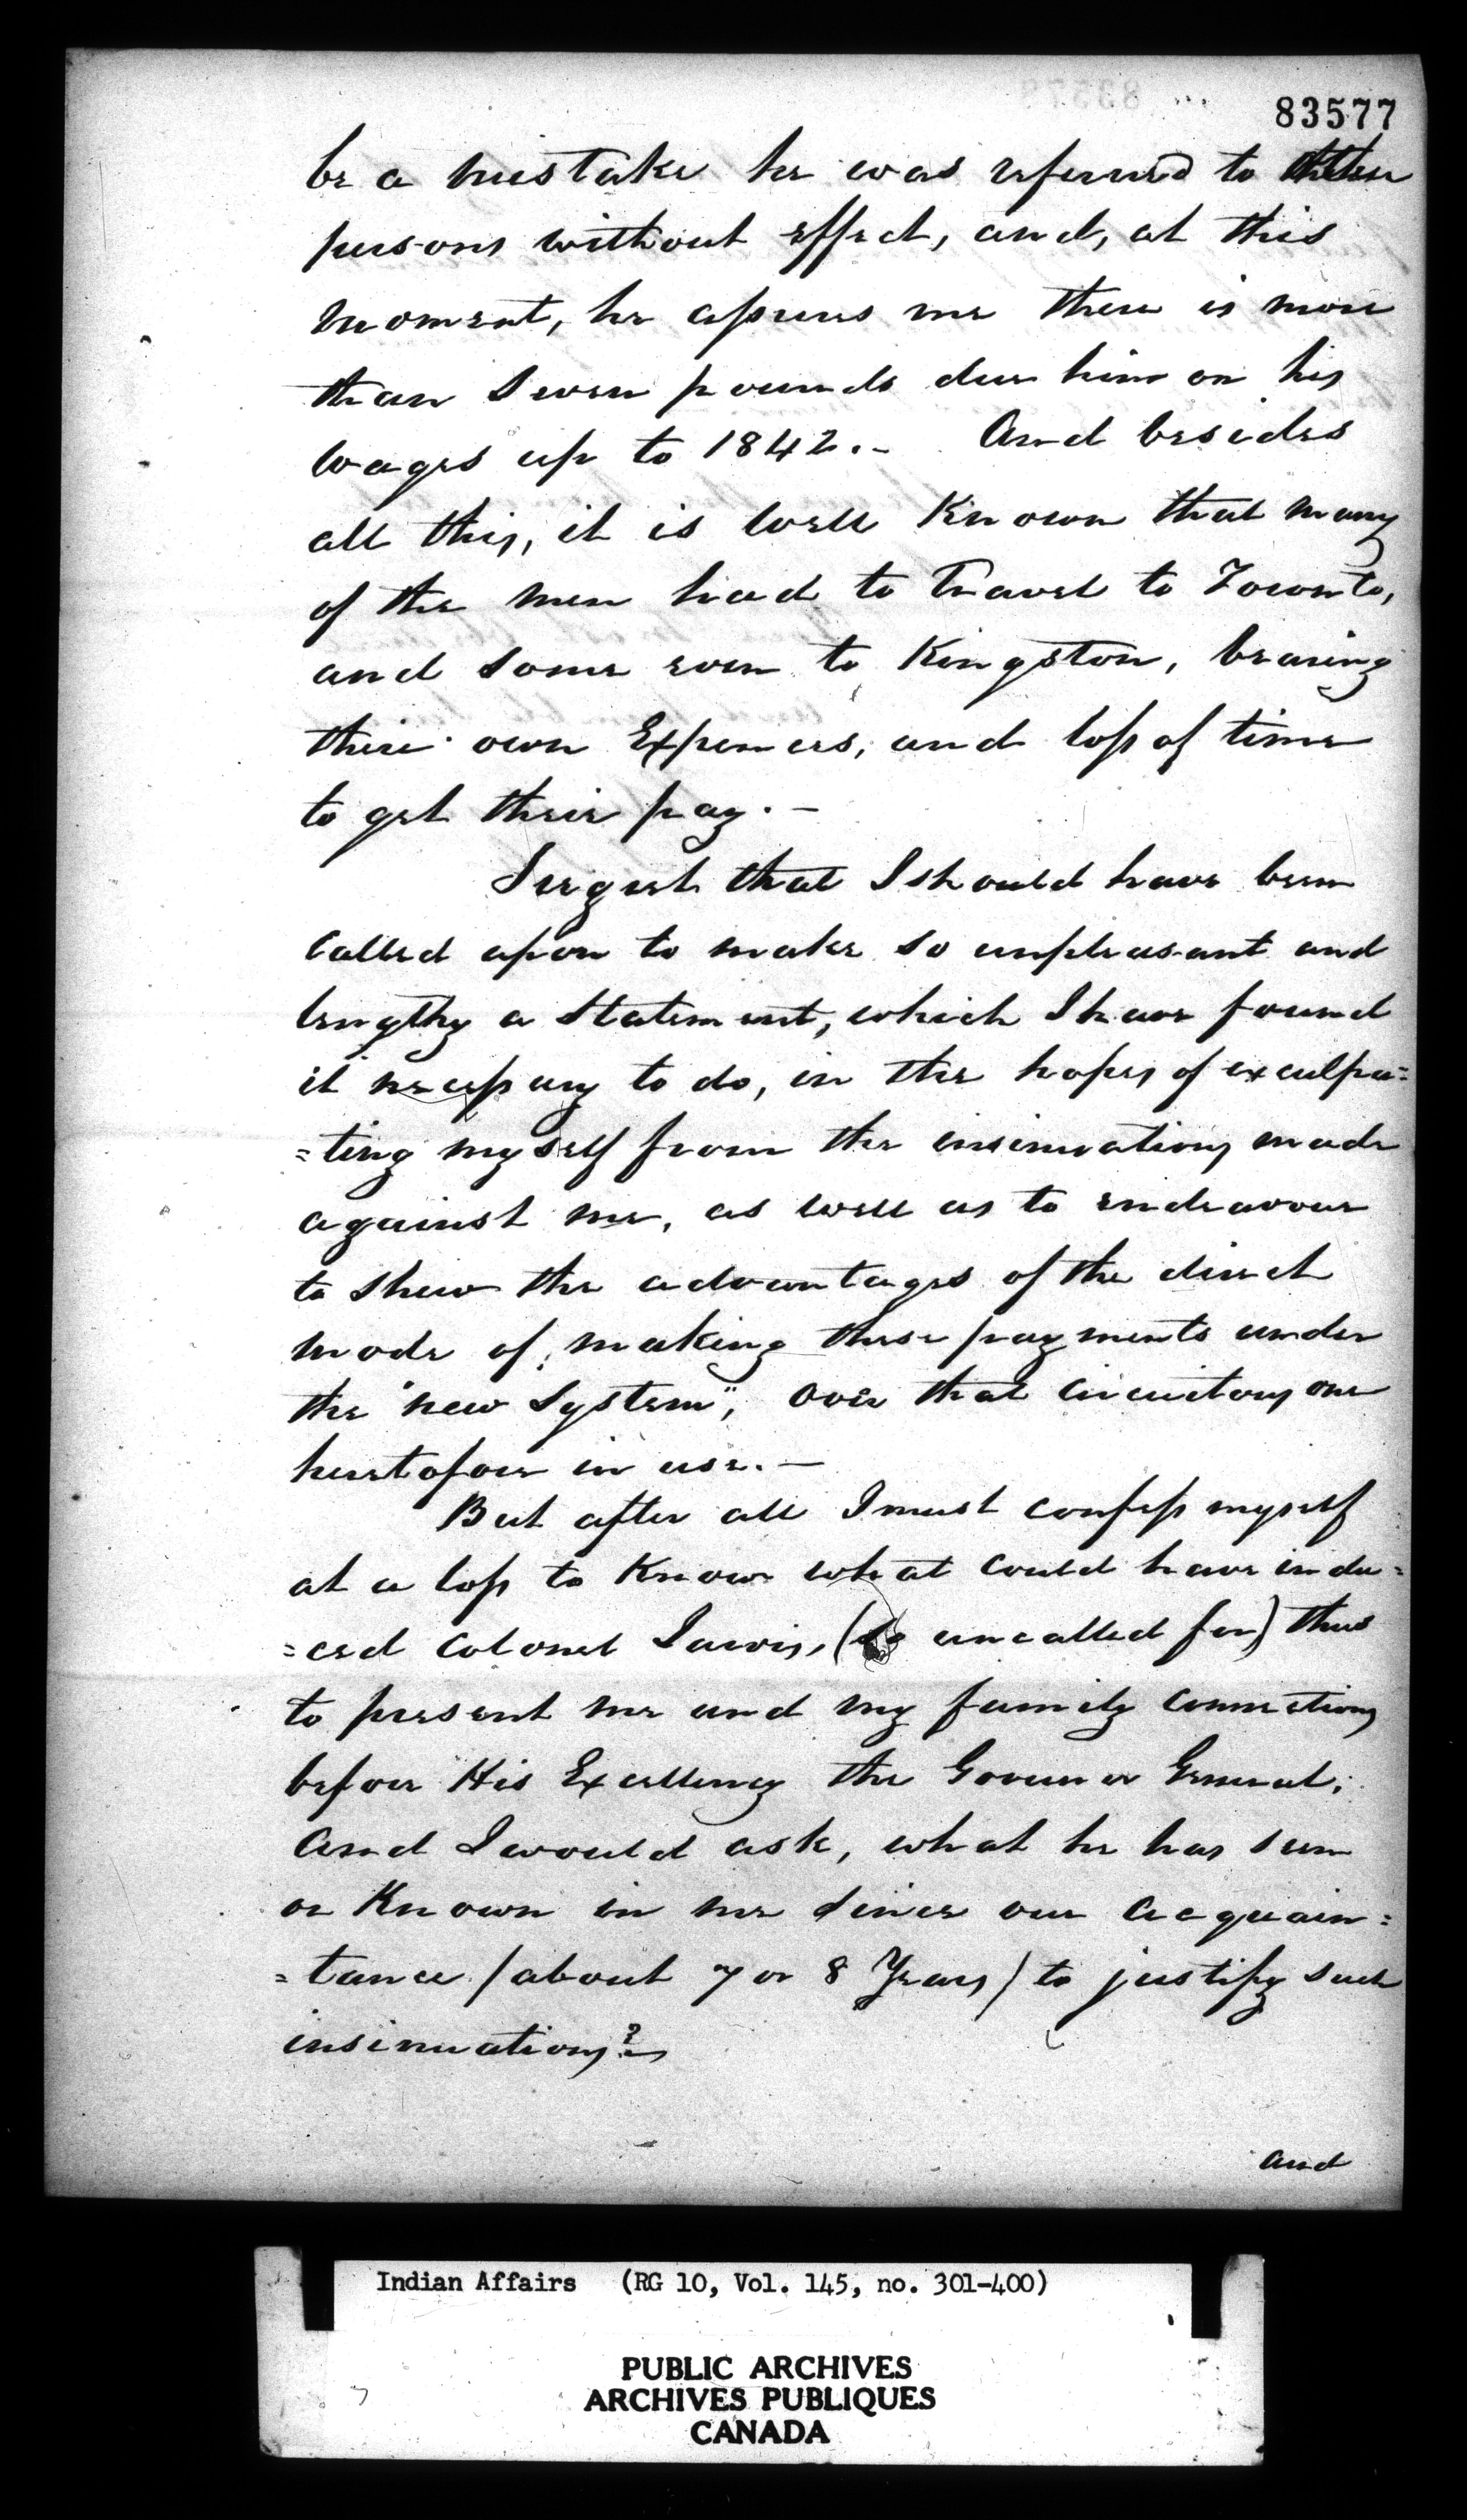 83577
be a mistake he was referred to other
persons without effect, and, at this
moment, he assures me there is more
than seven pounds due him on his
wages up to 1842.- And besides
all this, it is well Known that many
of the men had to Travel to Toronto,
and some even to Kingston, bearing
their own Expences, and loss of time
to get their pay.-
I regret that I should have been
called upon to make so unpleasant and
lengthy a Statement, which I have found
it necessary to do, in the hopes of exculpa=
=ting myself from the insinuations made
against me, as well as to endeavour
to shew the advantages of the direct
mode of making these payments under
the "new System", over that circuitous one
heretofore in use.-
But after all I must confess myself
at a loss to Know what could have indu=
=ced Colonel Jarvis, (so uncalled for) thus
to present me and my family connections
before His Excellency the Governor General;
And I would ask, what he has seen
or Known in me since our acquain=
=tance (about 7 or 8 Years) to justify such
insinuations?-
and
Indian Affairs (RG 10, Vol. 145, no. 301-400)
PUBLIC ARCHIVES
ARCHIVES PUBLIQUES
CANADA